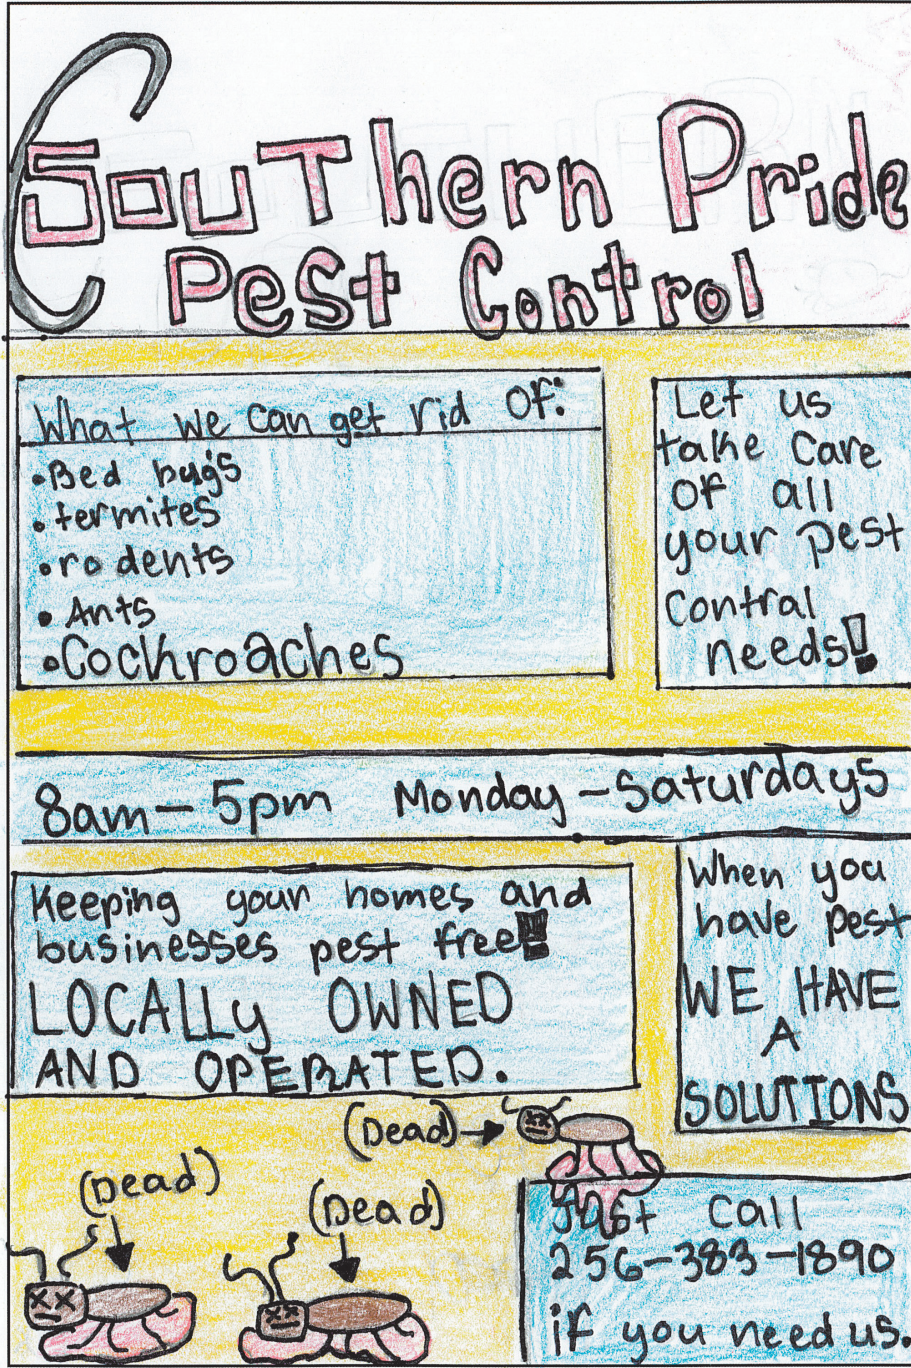 Southern Pride
Pest Control
What we can get rid of:
•Bed bugs
•termites
•rodents
•Ants
•Cockroaches
Let us
take care
of all
your pest
Control
needs!
8am-5pm Monday-Saturdays
Keeping your homes and
businesses pest free!!
LOCALLy OWNED
AND OPERATED.
When you
have pest
WE HAVE
A
SOLUTIONS
(Dead)
(Dead)
(Dead)
Just call
256-383-1890
if you need us.